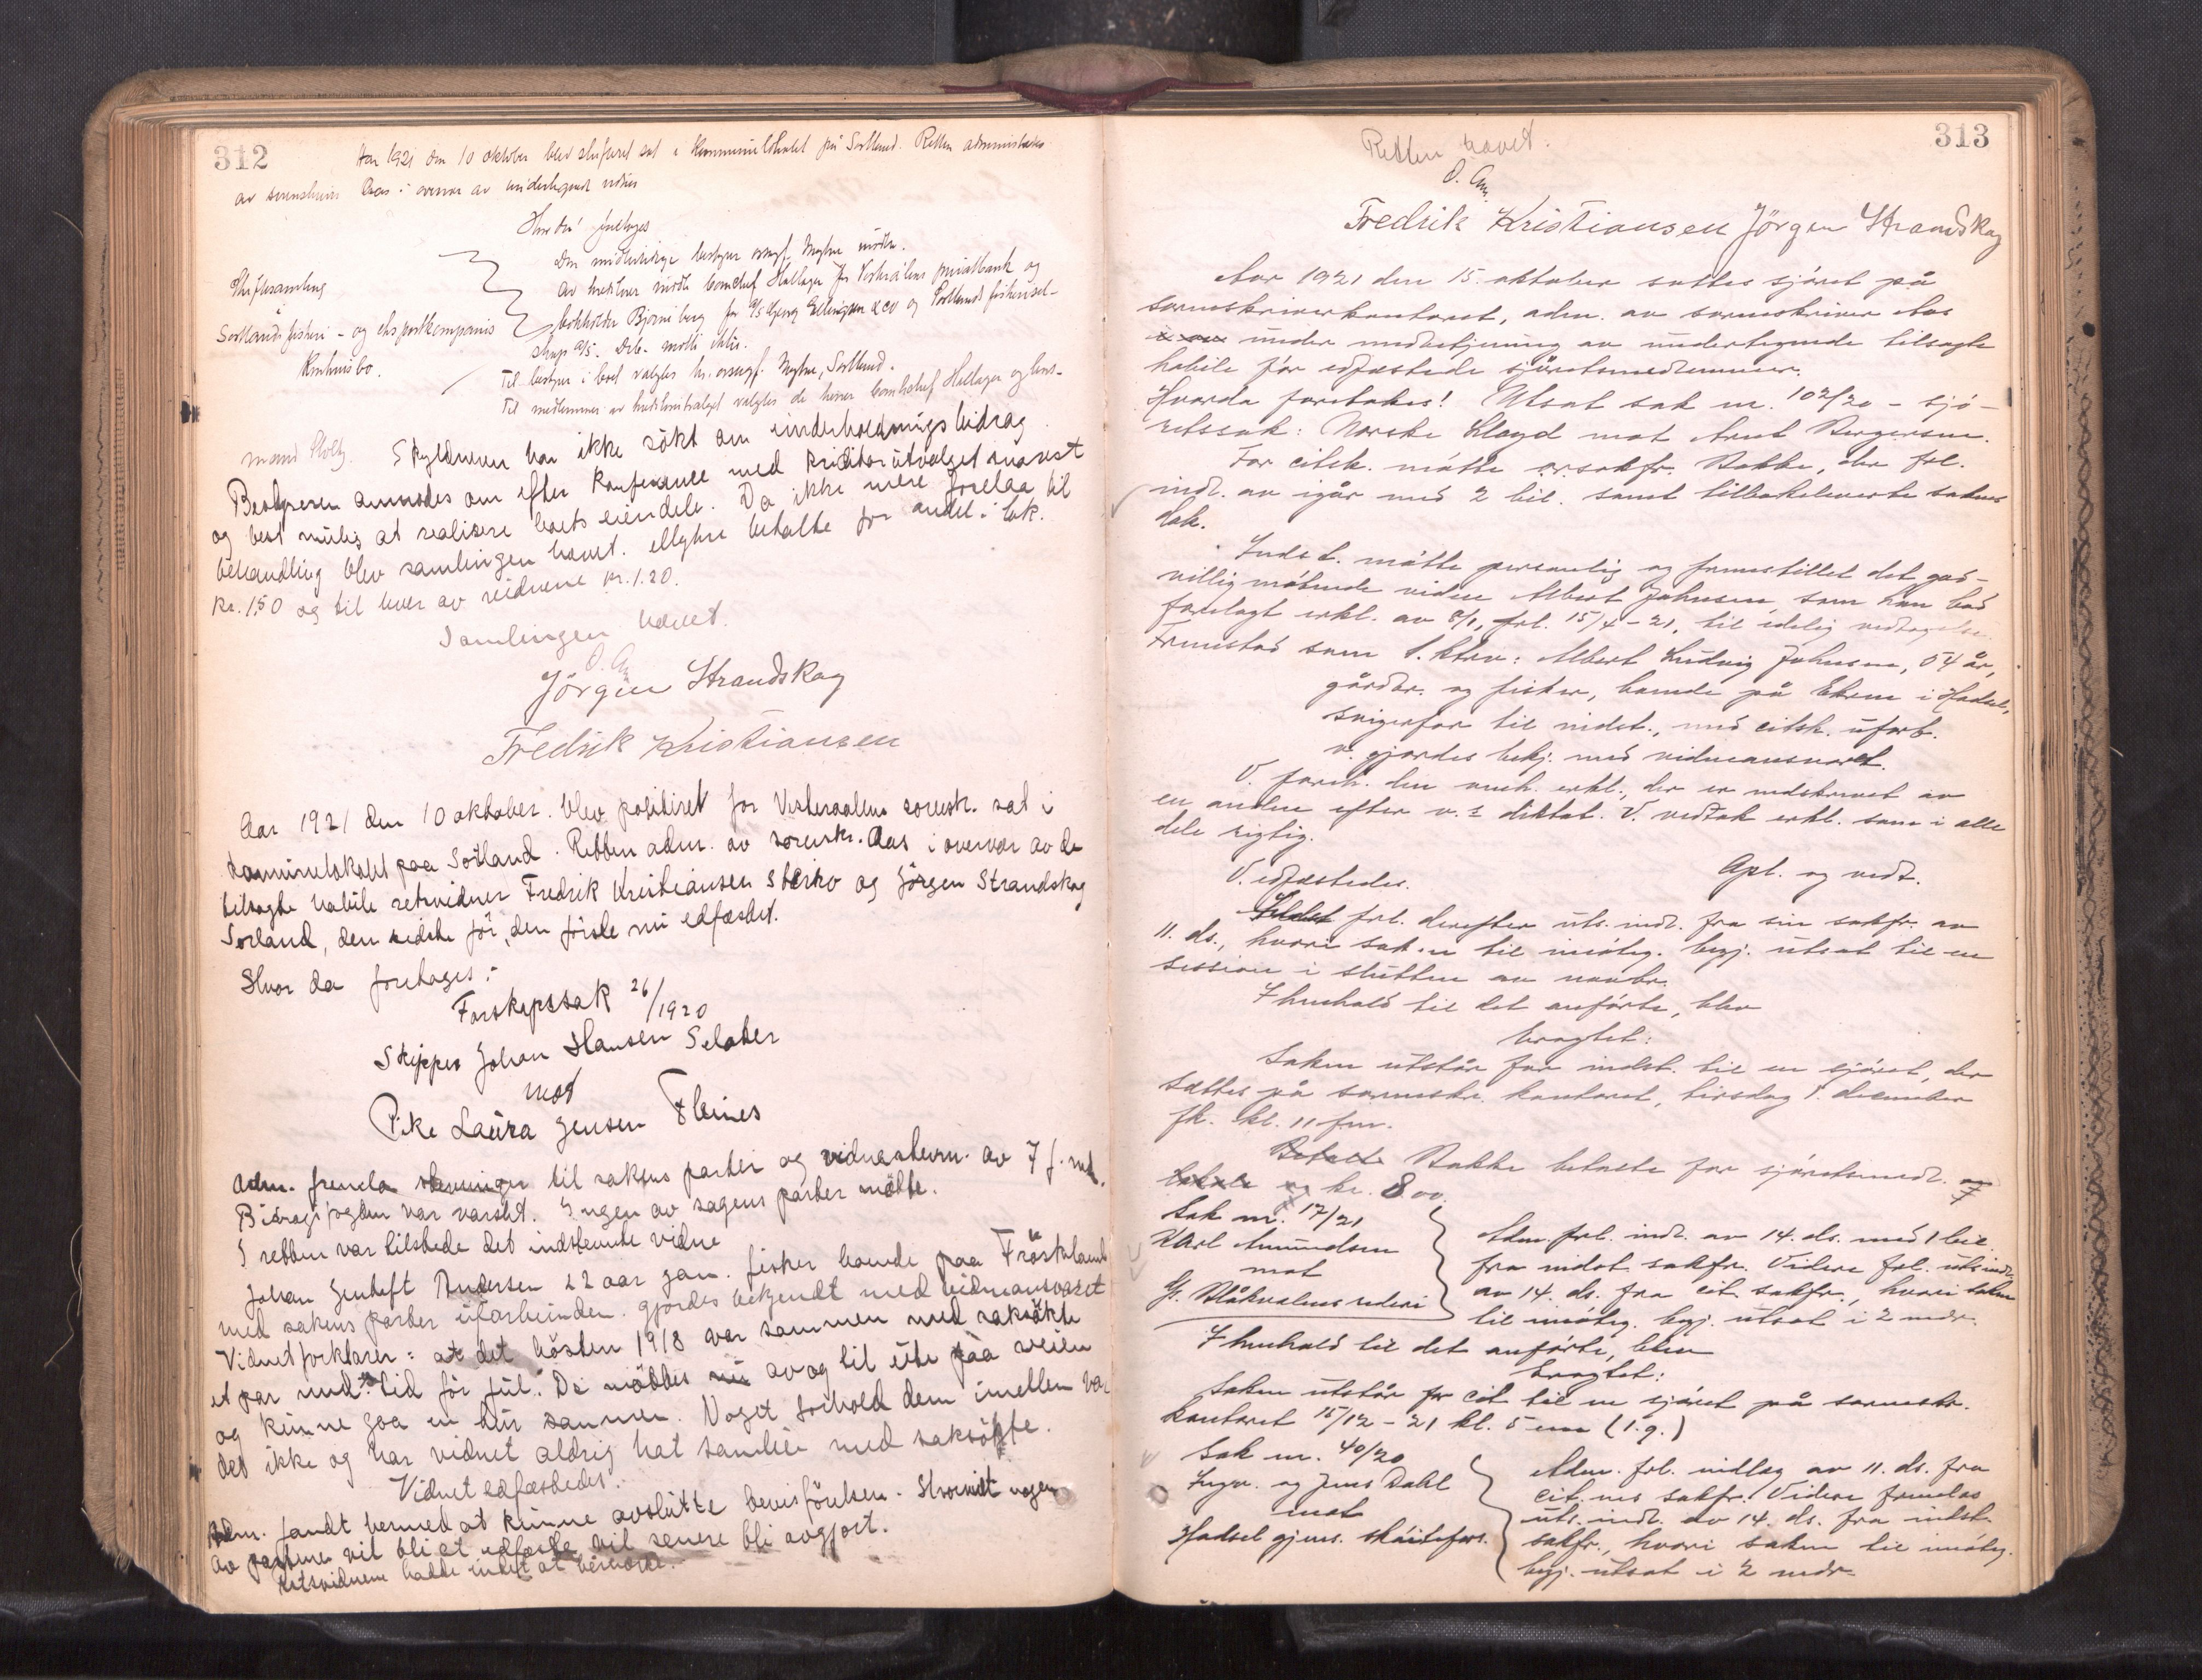 312
Aar 1921 den 10 oktober blev skifteret sat i kommunelokalet på Sortland. Retten administreres
av sorenskriver Aas i overvær av undertegnede vidner
Hvorda' foretages
Skiftesamling
i
Sortlands fiskeri- og eksportkompanis
konkursbo.
Den midlertidige bestyrer orsagf. Myhre møtte.
Av kreditorer møtte banchef Hallager for Vesterålens privatbank og
bokholder Bjørn berg for A/S Georg Ellingsen & co og Sortlands fiskersel-
skap A/S. Deb. møtte ikke.
Til bestyrer i boet valgtes hr. orsagf. Myhre, Sortland.
Til medlemmer av kreditorutvalget valgtes de herrer bankchef Hallager og lens-
mand Holtz. Skyldneren har ikke søkt om underholdningsbidrag
Bestyreren anmodes om efter konferance med kreditorutvalget snarest
og best mulig at realisere boets eiendele. Da ikke mere forelaa til
behandling blev samlingen hævet. Myhre betalte for andel i lok.
kr. 1.50 og til hver av vidnerne kr. 1.20.
Samlingen hævet.
O. Aas
Jörgen Strandskog
Fredrik Kristiansen
Aar 1921 den 10 oktober. blev politiret for Vesteraalens sorensk. sat i
kommunelokalet paa Sortland. Retten adm. av sorenskr. Aas i overvær av de
tilsagte habile retsvidner Fredrik Kristiansen Sterko og Jörgen Strandskog
Sortland, den sidste för, den förste nu edfæstet.
Hvor da foretages:
Farskapssak 26/1920
Skipper Johan Hansen Selater
mot
Pike Laura Jensen Fleines
Adm. fremla stevninger til sakens parter og vidnestevn. av 7 f. md.
Bidragsfogden var varslet. Ingen av sagens parter mötte.
I retten var tilstede det indstevnte vidne
Johan Gentoft Andersen 22 aar gam. fisker boende paa Fröskeland
med sakens parter uforbunden. gjordes bekjendt med vidneansvaret
Vidnet forklarer: at det hösten 1918 var sammen med saksökte
et par md. tid för jul. De möttes av og til ute paa veien
og kunne gaa en tur sammen. Noget forhold dem imellem var
det ikke og har vidnet aldrig hat samleie med saksökte.
Vidnet edfæstedes.
Adm. fandt hermed at kunne avslutte bevisförelsen. Hvorvidt nogen
av parterne vil bli at edfæste vil senere bli avgjort.
Retsvidnerne hadde intet at bemerke.
313
Retten hævet.
O. Aas
Fredrik Kristiansen Jörgen Strandskog
Aar 1921 den 15. oktober sattes sjøret på
sorenskriverkontoret, adm. av sorenskriver Aas
under medbetjening av undertegnede tilsagte
habile før edfæstede sjøretsmedlemmer.
Hvorda foretokes! Utsat sak nr. 102/20 - sjø-
retssak: Norske Lloyd mot Arnt Bergersen.
For citsk. møtte orsakfr. Bakke, der frl.
indl. av igår med 2 bil. samt tilbakeleverte sakens
dok.
Indst. møtte personlig og fremstillet det god-
villig møtende vidne Albert Johnsen, som han bad
forelagt erkl. av 8/1, frl. 15/4-21, til edelig vedtagelse.
Fremstod som 1. ktrv: Albert Ludvig Johnsen, 54 år,
gårdbr. og fisker, boende på Ekren i Hadsel,
svigerfar til indst., med citsk. uforb.
V. gjordes bekj. med vidneansvaret.
V. foreh. den nevnte erkl., der er nedskrevet av
en anden efter v.s diktat. V. vedtok erkl. som i alle
dele rigtig.
Opl. og vedt.
V. edfæstedes.
frl. derefter uts. indl. fra sin sakfr. av
11. ds., hvori saken til imøteg. begj. utsat til en
session i slutten av novbr.
I henhold til det anførte, blev
eragtet:
Saken utstår for indst. til en sjøret, der
sættes på sorenskr. kontoret, tirsdag 1. december
fk. kl. 11 fm.
Bakke betalte for sjøretsmedl.
kr. 8.00.
Sak nr. 17/21
Karl Amundsen
mot
G. Blåkvalens rederi
Adm. frl. indl. av 14. ds. med 1 bil.
fra indst. sakfr. Videre frl. uts. indl.
av 14. ds. fra cit. sakfr., hvori saken
til imøteg. begj. utsat i 2 mdr.
I henhold til det anførte, blev
eragtet:
Saken utstår for cit. til en sjøret på sorenskr.
kontoret 15/12-21 kl. 5 em (l.g.)
Sak nr. 40/20
Ingv. og Jens Dahl
mot
Hadsel gjens. skøitefors.
Adm. frl. indlæg av 11. ds. fra
cit.nes sakfr. Videre fremlas
uts. indl. av 14. ds. fra indst.
sakfr., hvori saken til imøteg.
begj. utsat i 2 mdr.